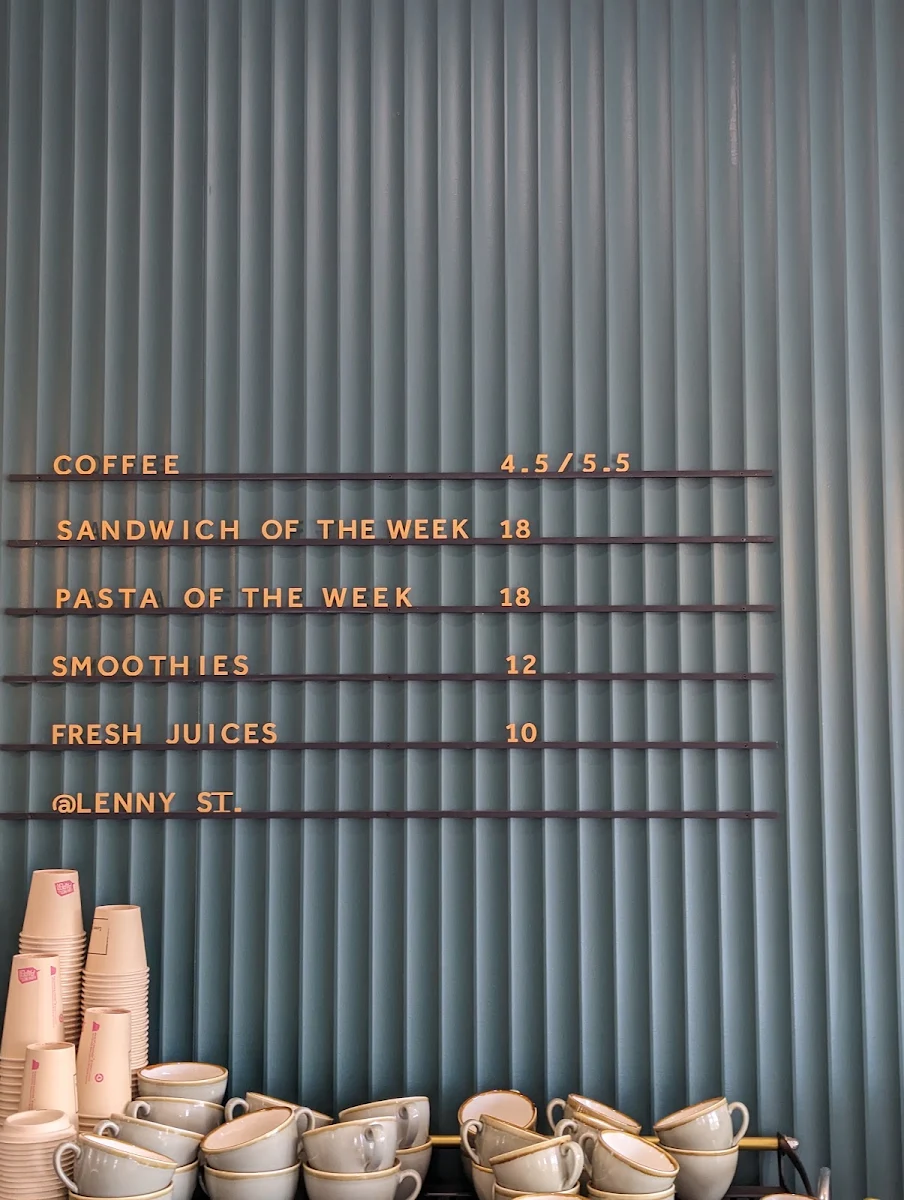 COFFEE 4.5/5.5
SANDWICH OF THE WEEK 18
PASTA OF THE WEEK 18
SMOOTHIES 12
FRESH JUICES 10
@LENNY ST.